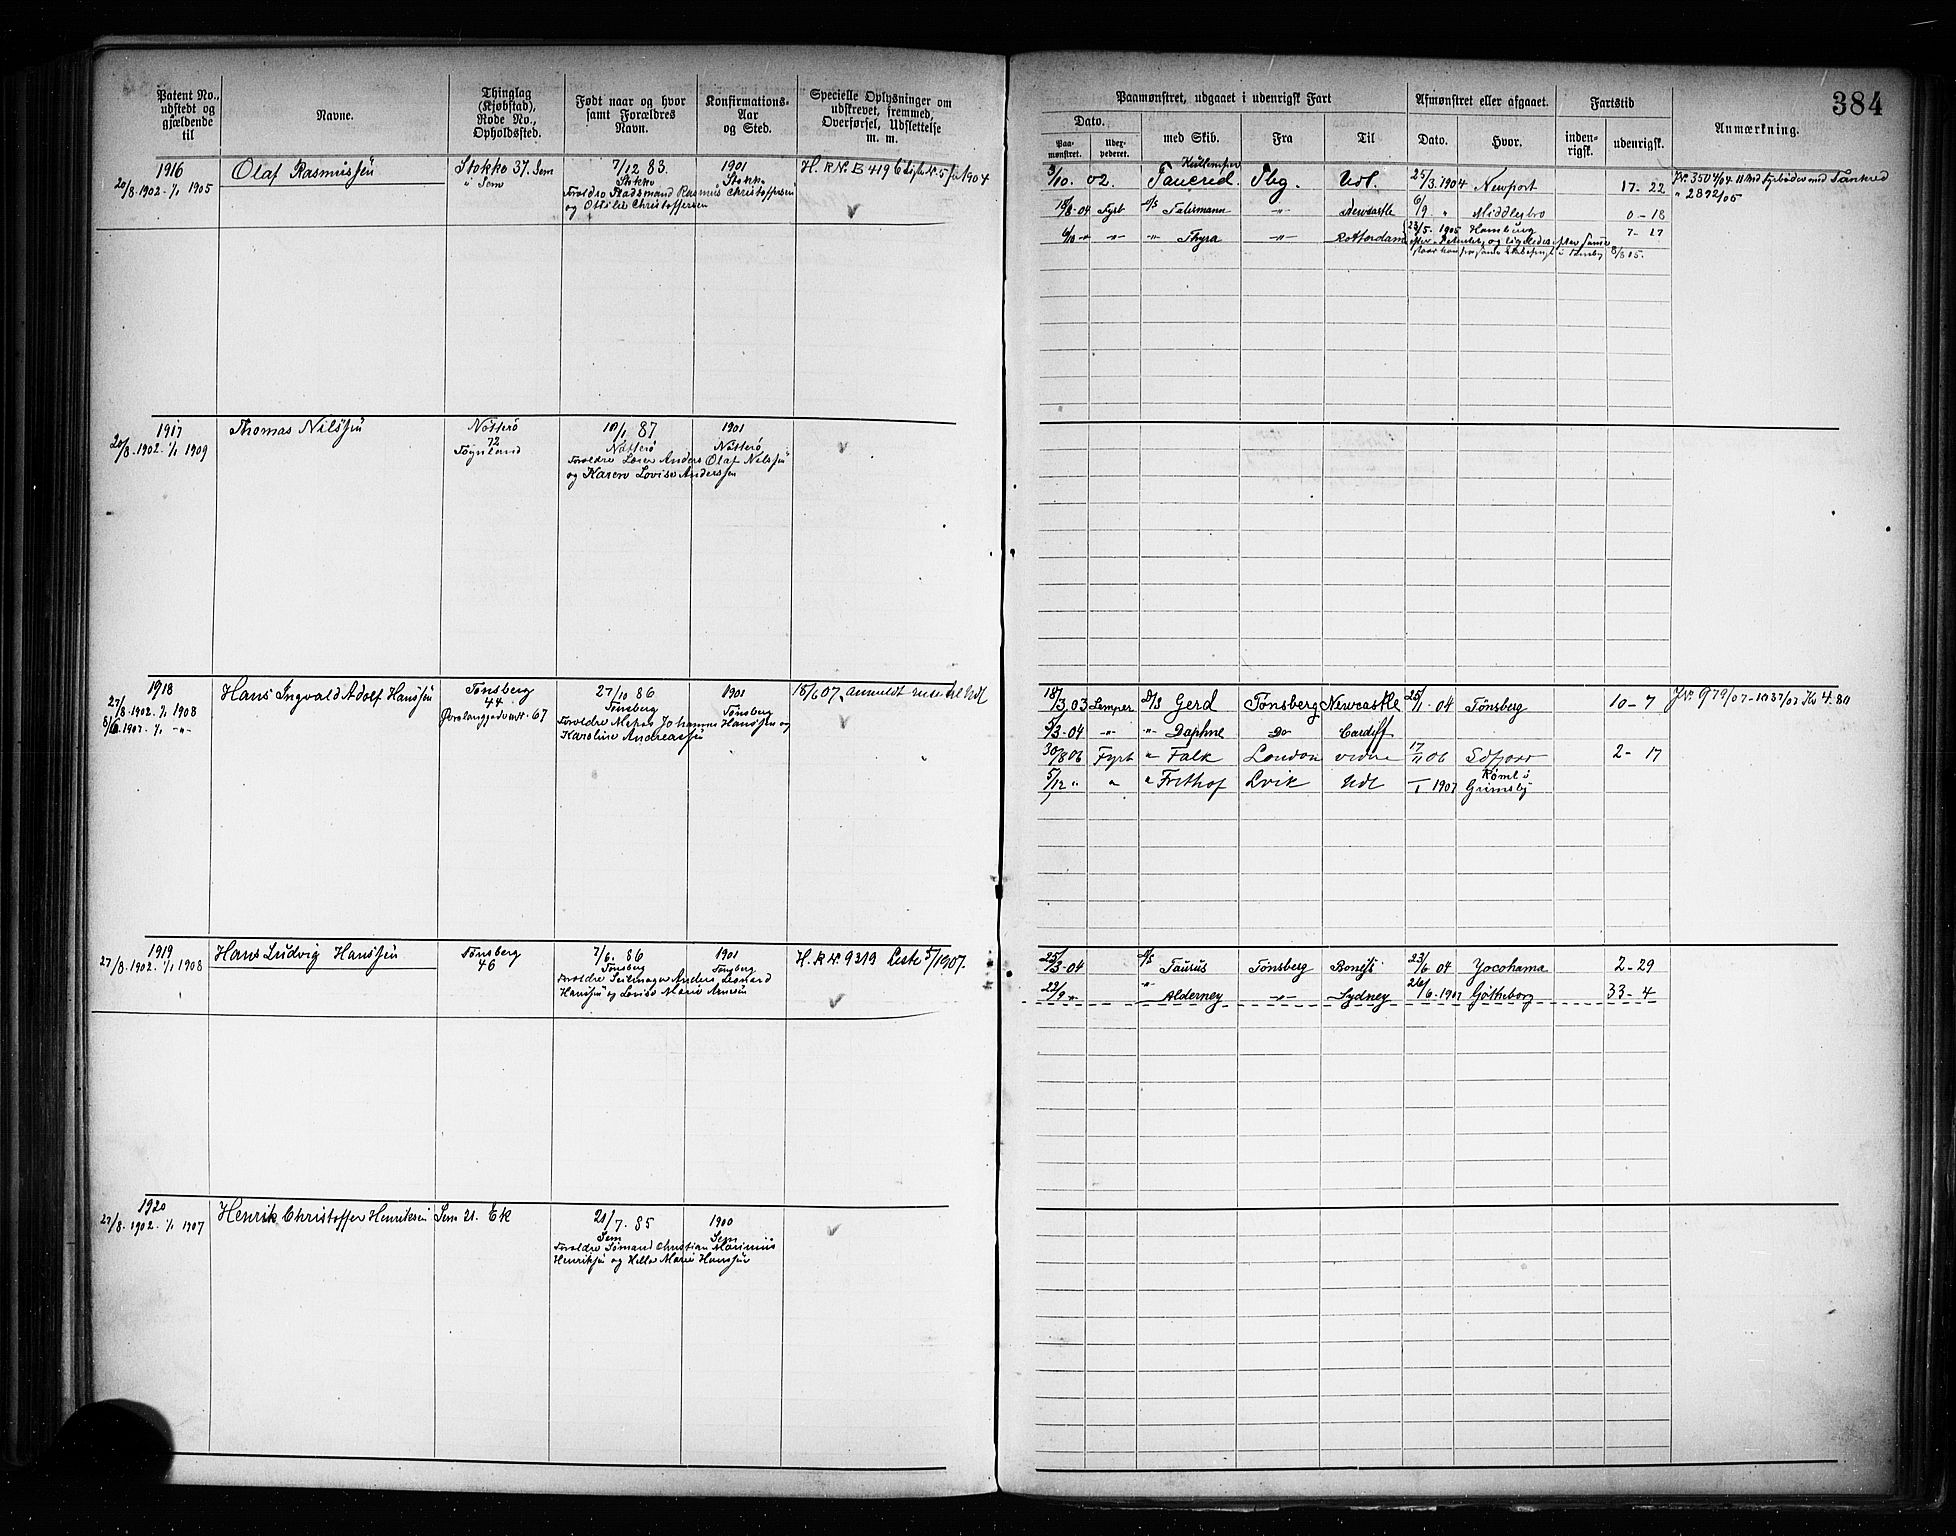 384
Patent No., udstedt og gjældende til
Navne.
Thinglag (Kjøbstad), Rode No., Opholdssted.
Født naar og hvor samt Forældres Navn.
Konfirmations-Aar og Sted.
Specielle Oplysninger om udskrevet, fremmed, Overførsel, Udslettelse m. m.
Paamønstret, udgaaet i udenrigsk Fart
Afmønstret eller afgaaet.
Fartstid
Anmærkning.
Dato.
Paamønstret.
med Skib.
Fra
Til
Dato.
Hvor.
inden-rigsk.
udenrigsk.
1916
20/8. 1902. 1/1 1905
Olaf Rasmussen
Stokke 37. Sem
7/12 83.
Stokke
Forældre Rasmus Christoffersen
og Ottilie Christoffersen
1901
Stokke
H. R Nº. B 419
1904
3/10. 02. Tancred. Tbg. Udl. 25/3. 1904 Newport 17-22
Tankred
" 2892/05
Fyrb D/S Talismann -"- Newcastle 6/9. " Middlesbro 0-18
6/10 -"- -"- -"- Thyra -"- Rotterdam 23/5. 1905 Hamburg 7-17
1917
20/8. 1902. 1/1 1909
Thomas Nilssen
Nøtterø
72
10/1 87
Nøtterø
Anders Olaf Nilssen
og Karen Lovise Anderssen
1901
Nøtterø
1918
27/8. 1902. 1/1 1908
1907. 1/1 -"-
Hans Ingvald Adolf Hanssen
Tønsberg
44
67
27/10 86
Tønsberg
Forældre Johannes Hanssen og
Karoline Andreassen
1901
Tønsberg
15/6 07
18/3 03 Lemper D/S Gerd Tønsberg Newcastle 25/1 - 04 Tønsberg 10-7
5/3-04 -"- -"- Daphne Do Cardiff
30/8 06 Fyrb " Falk London 17/11 06 2-17
5/12 " " " Frithof Lvik Udl 1907 Grimsby
1919
27/8. 1902. 1/1 1908
Hans Ludvig Hanssen
Tønsberg
46
7/6. 86
Tønsberg
Forældre Seilmager Anders Leonard
Hanssen og Lovise Marie
1901
Tønsberg
H. R Nº. 9319 Liste 5/1907.
25/3-04 D/S Taurus Tønsberg 23/6 04 Yocohama 2-29
22/9 " " Alderney -"- Sydney 26/6. 1907 Gøtheborg 33-4
1920
27/8. 1902. 1/1 1907
Henrik Christoffer Henriksen
Sem 21. Ek
21/7. 85
Sem
Forældre Sømand Christian
Henriksen og Marie Hanssen
1900
Sem